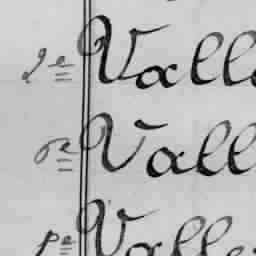 2e Vall
6e Vall
pe Valle